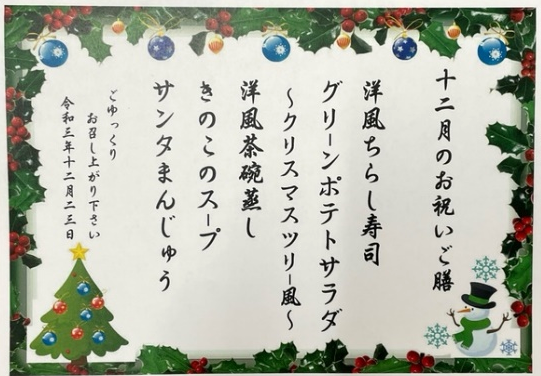 十二月のお祝いご膳
洋風ちらし寿司
グリーンポテトサラダ
～クリスマスツリー風～
洋風茶碗蒸し
きのこのスープ
サンタまんじゅう
ごゆっくり
お召し上がり下さい
令和三年十二月二三日